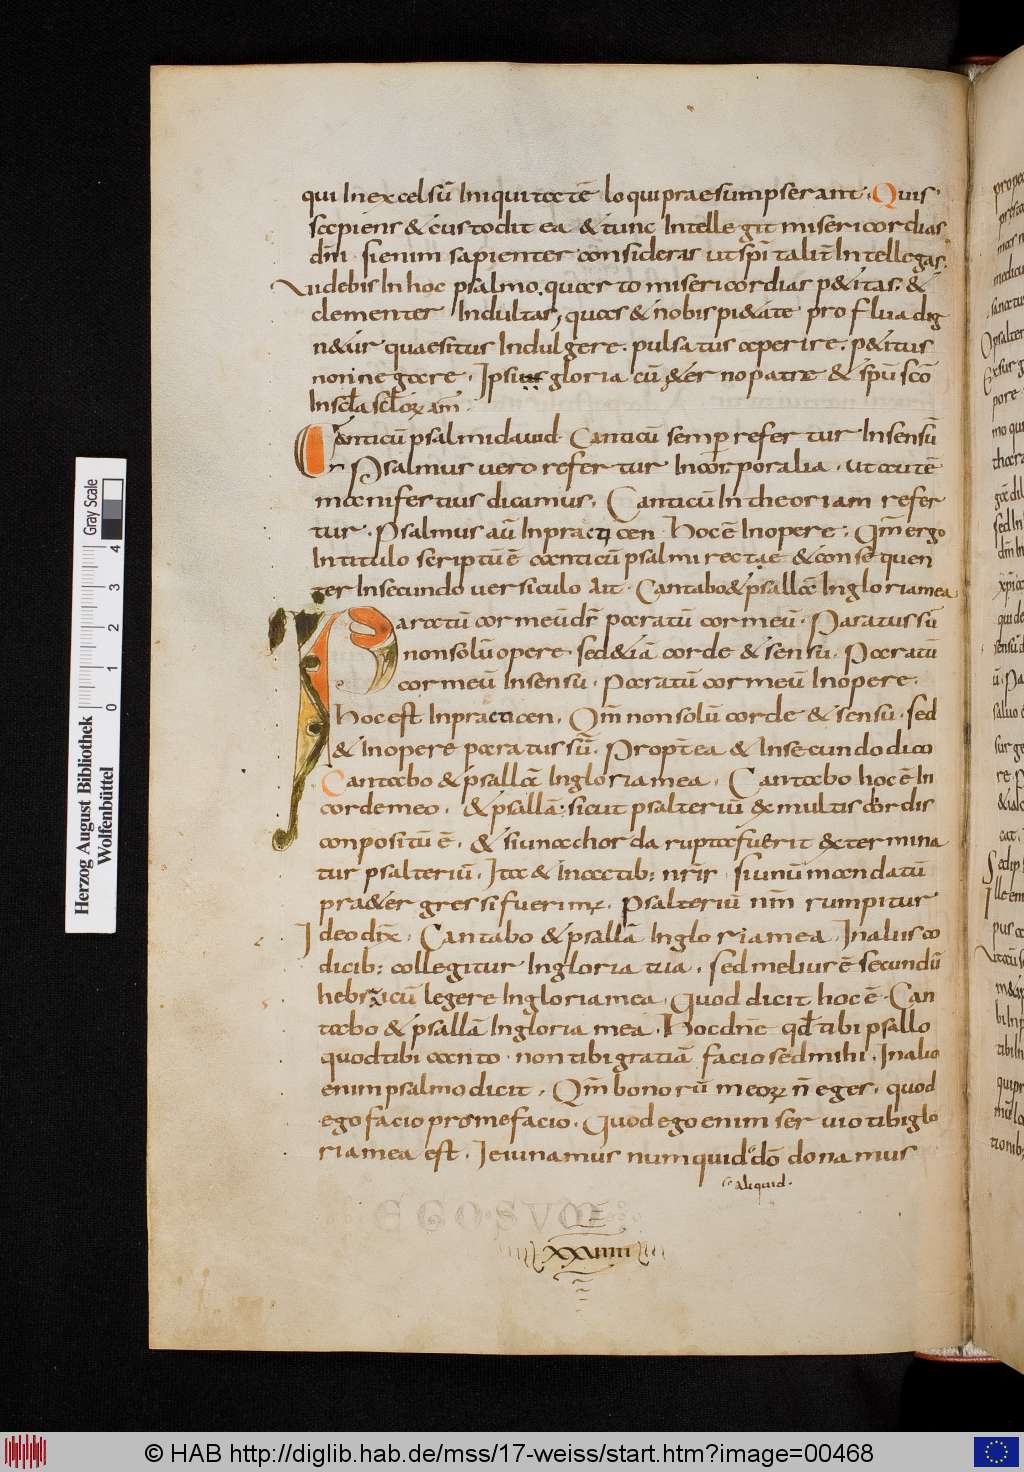 qui In excelsū Iniquitatē loqui praesumpserant. Quis
sapiens & custodit ea & tunc Intellegit misericordias
dn̄i. si enim sapienter consideras ut sp̄italit̄ Intellegas.
Uidebis In hoc psalmo. quarto misericordias p&itas. &
clementer Indultas, quas & nobis pi&ate proflua dig
n&ur quaesitus Indulgere. pulsatus aperire. p&itus
non negare. Ipsius gloria cū &erno patre & sp̄u sc̄o
In sc̄la sc̄loꝝ am̄.
Canticū psalmi dauid. Canticū semp̄ refertur In sensū
r Psalmus uero refertur In corporalia. ut autē
manifestius dicamus. Canticū In theoriam refer
tur. Psalmus aū Inpracticen. Hoc ē In opere. Qm̄ ergo
In titulo scriptū ē canticū psalmi recta e & consequen
ter In secundo uersiculo Ait. Cantabo & psallā In gloria mea
Paratū cor meū ds̄ paratū cor meū. Paratus sū
non solū opere sed & iā corde & sensu. Paratū
cor meū In sensu. Paratū cor meū In opere.
Hoc est Inpracticen. Qm̄ non solū corde & sensu. sed
& In opere paratus sū. Propt̄ea & In secundo dico
Cantabo & psallā In gloria mea. Cantabo hoc ē In
corde meo. & psallā. sicut psalteriū ex multis cordis
conpositū ē. & si una chorda rupta fuerit extermina
tur psalteriū. Ita & In actib; nr̄is si unū mandatū
pra&ergressi fuerimꝰ. Psalteriū nm̄ rumpitur
Ideo dix̄. Cantabo & psallā In gloria mea. In aliis co
dicib; collegitur In gloria tua. sed melius ē secundū
hebraicū legere In gloria mea. Quod dicit hoc ē. Can
tabo & psallā In gloria mea. Hoc dn̄e qd̄ tibi psallo
quod tibi canto. non tibi gratiā facio sed mihi. In alio
enim psalmo dicit. Qm̄ bonorū meoꝝ n̄ eges. quod
ego facio pro me facio. Quod ego enim seruio tibi glo
ria mea est. Ieiunamus numquid dō donamus
aliquid.
EGO SVM
XXIIII
Herzog August Bibliothek
Wolfenbüttel
0 1 2 3 4
Gray Scale
© HAB http://diglib.hab.de/mss/17-weiss/start.htm?image=00468